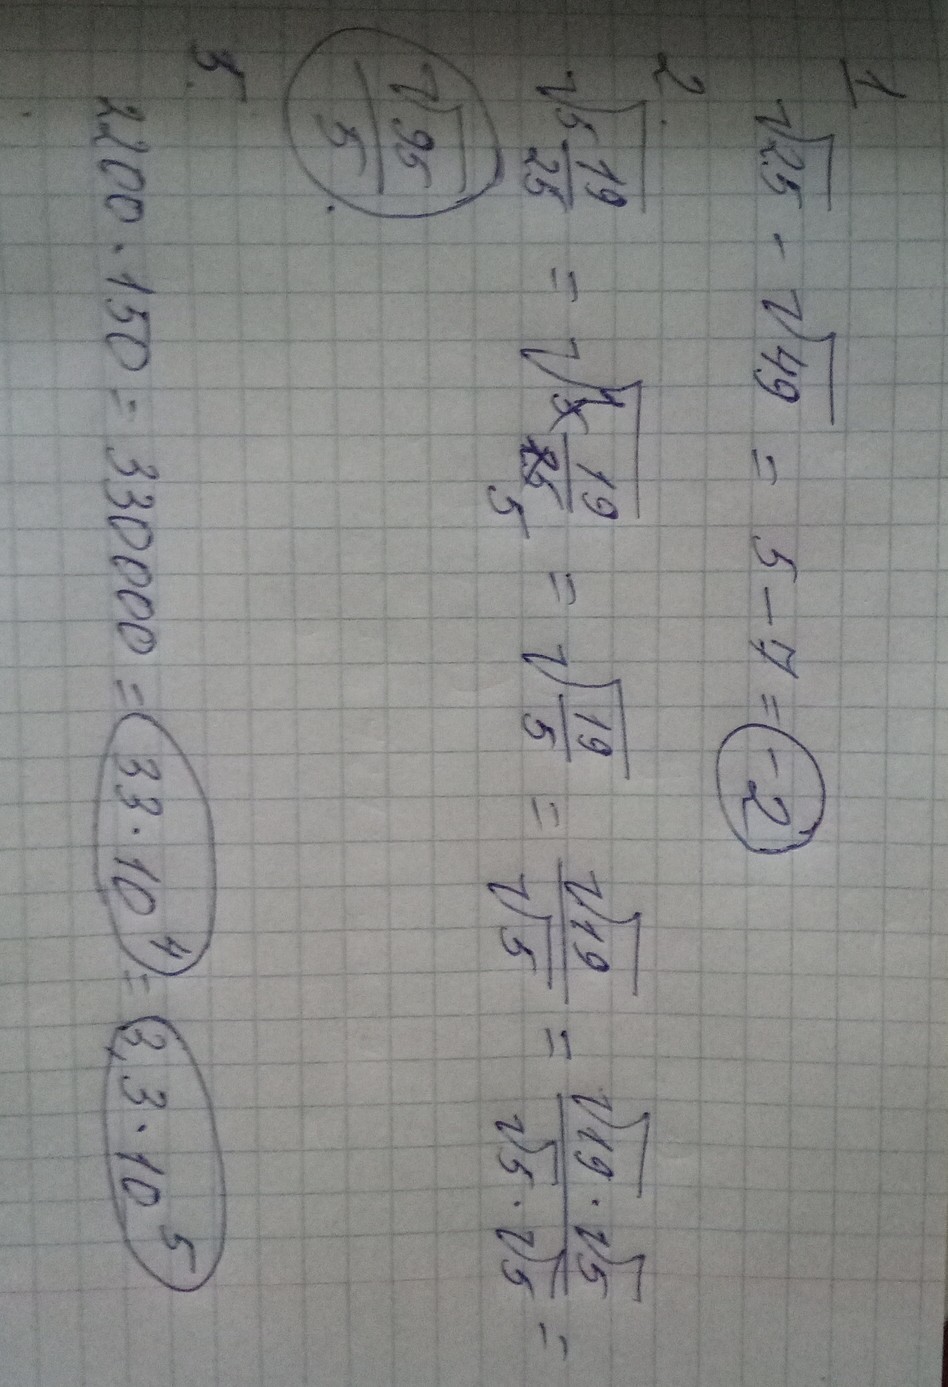 1
√25 - √49 = 5 - 7 = -2
2.
√(5 19/25) = √(5 19/25) = √(19/5) = √19/√5 = (√19 · √5)/(√5 · √5) =
√95/5
3.
2200 · 150 = 330000 = 33 · 10⁴ = 3,3 · 10⁵